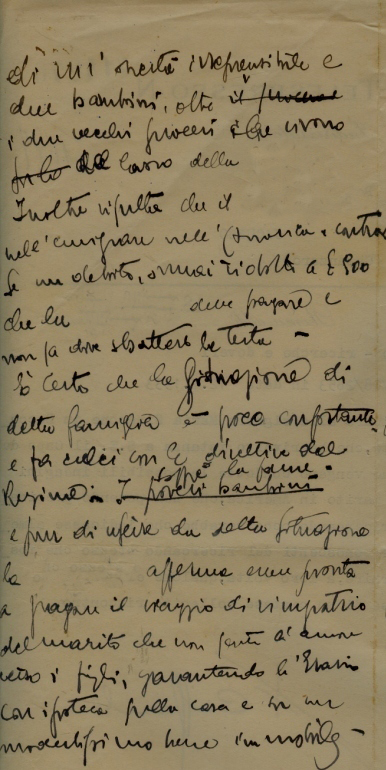 di un'onestà irreprensibile e
due bambini, oltre il suocero
i due vecchi suoceri che vivono
solo del lavoro della
Inoltre risulta che il
nell'emigrare nell'America, contras
se un debito, ormai ridotto a £ 900
che la deve pagare e
non sa dove sbattere la testa —
È certo che la situazione di
detta famiglia è poco confortante
e fa calci con le direttive del
Regime. I poveri bambini
soffre la fame.
e pur di uscire da detta situazione
la afferma essere pronta
a pagare il viaggio di rimpatrio
del marito che non sente d'amore
verso i figli, garantendo l'Erario
con ipoteca sulla casa e su un
modestissimo bene immobile —